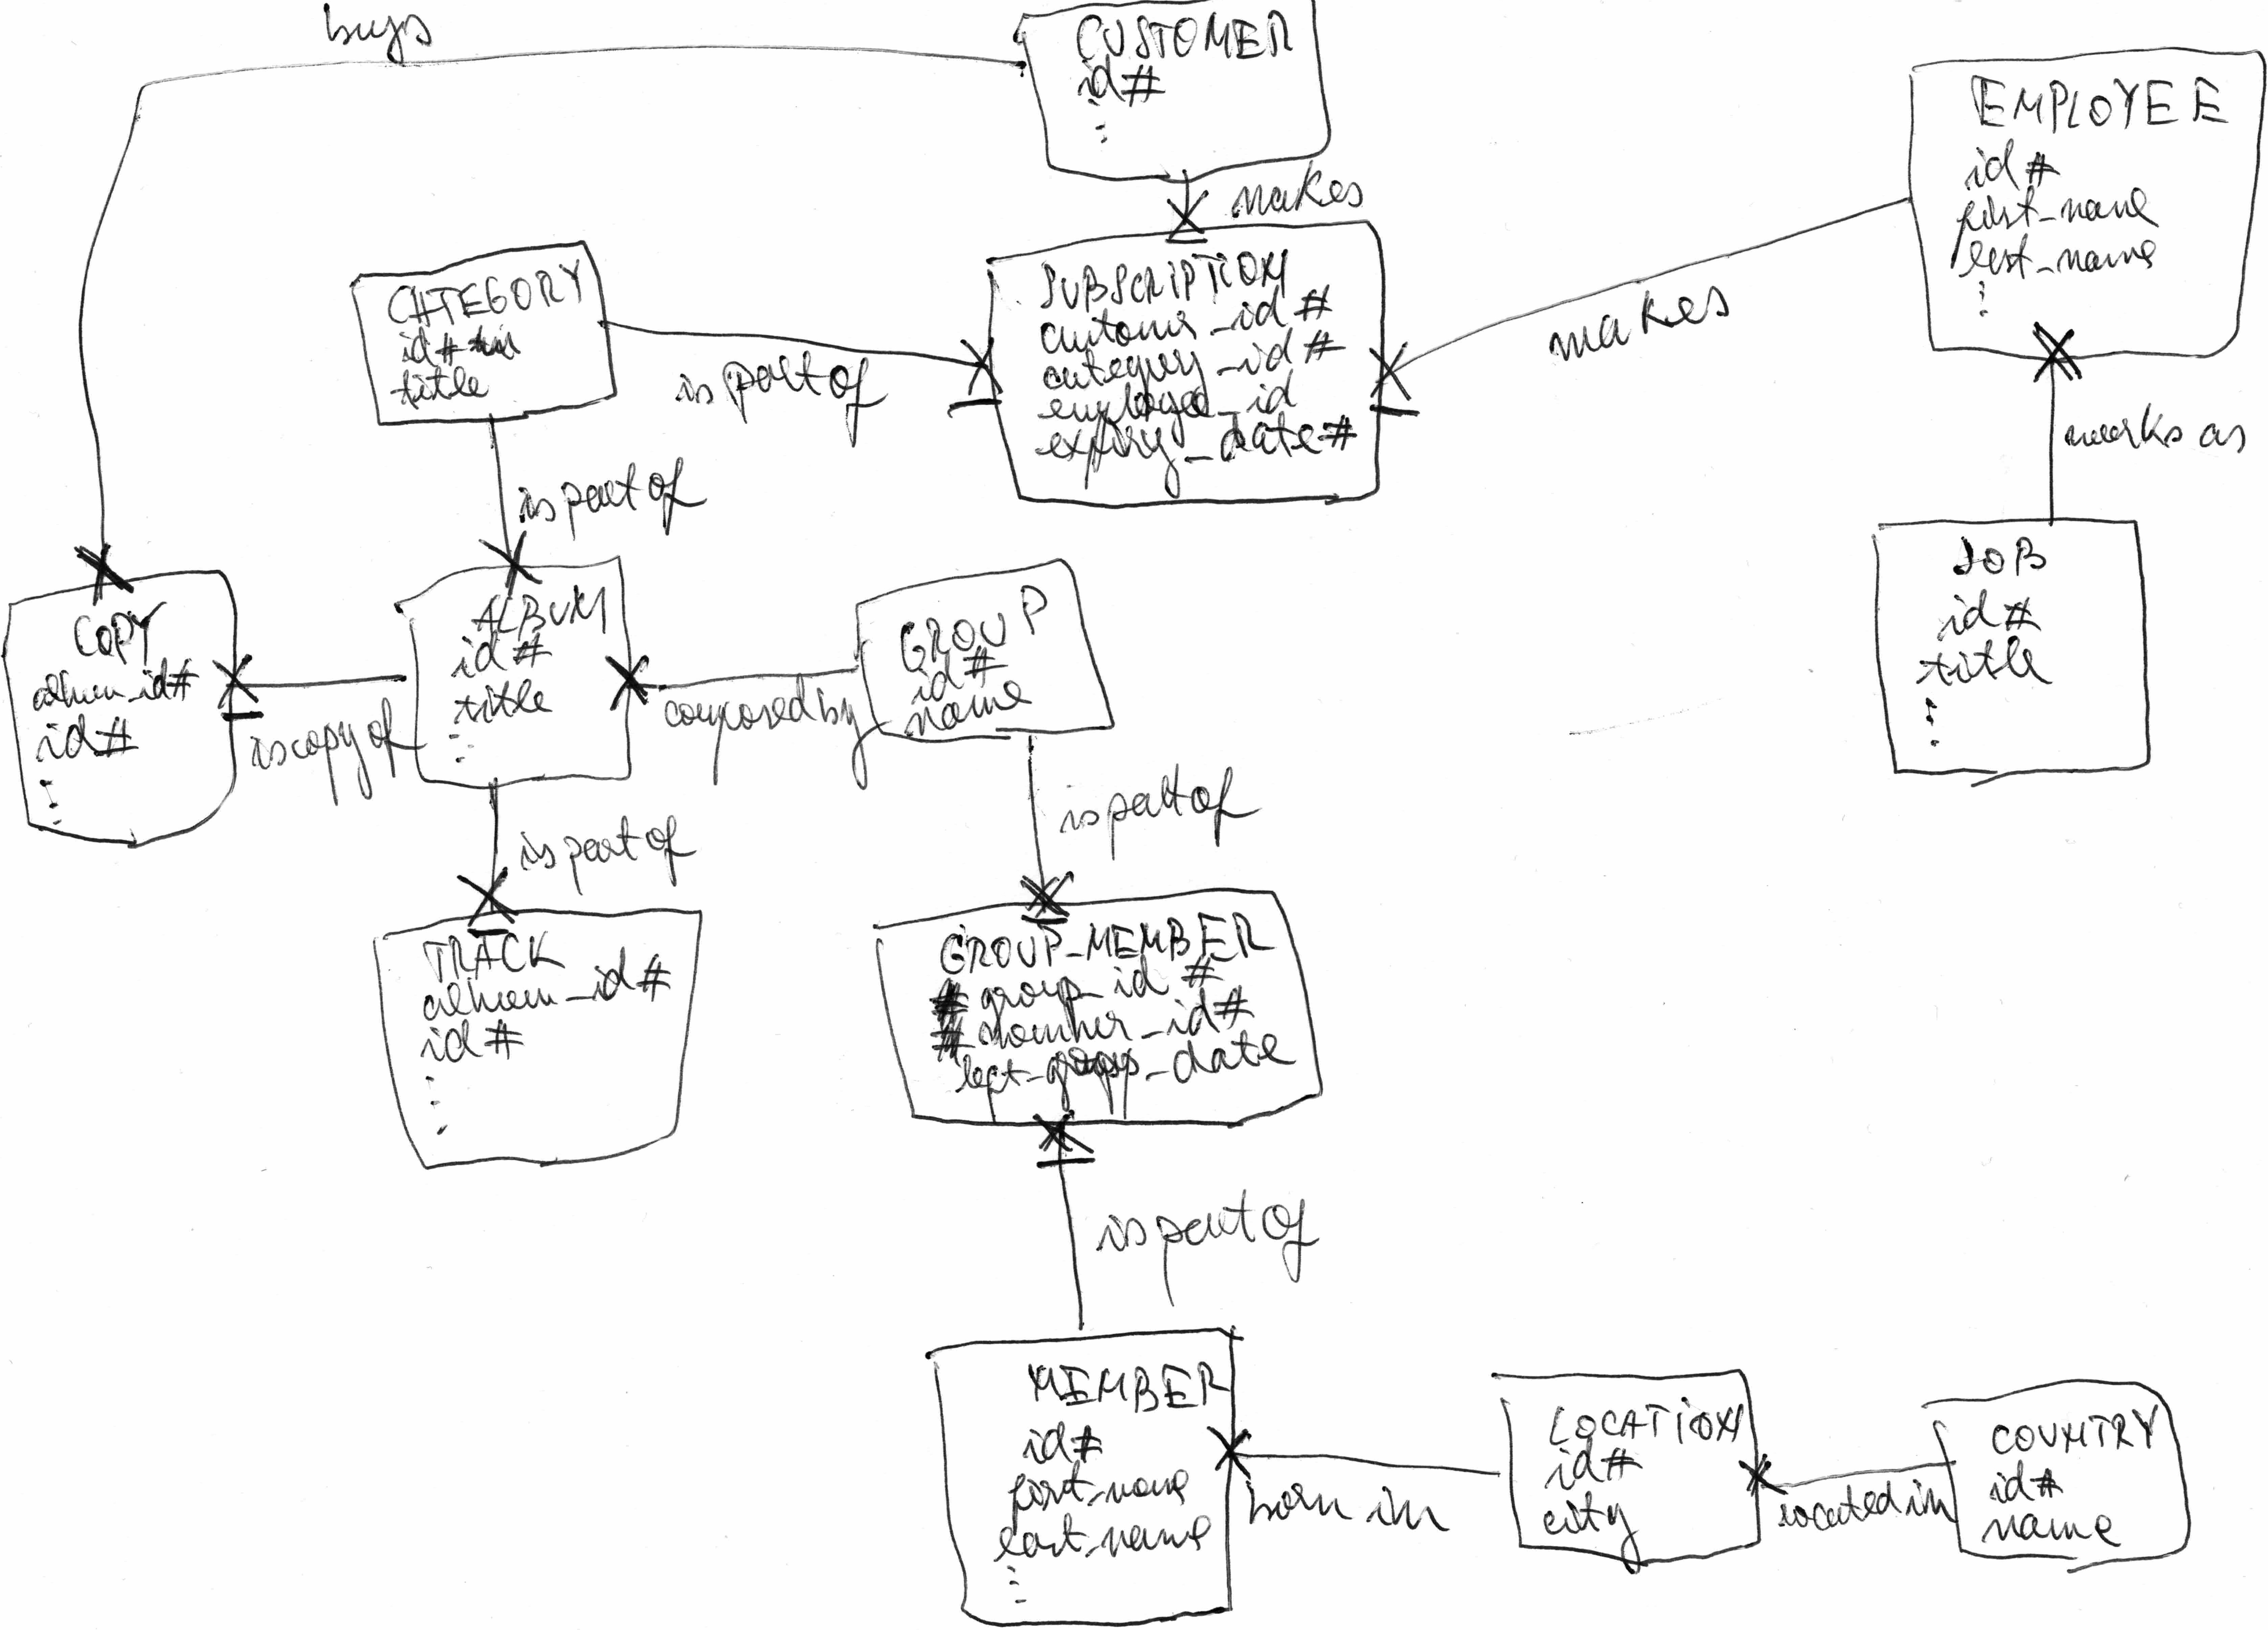 buys
CUSTOMER
id#
:
makes
EMPLOYEE
id#
first_name
last_name
:
makes
works as
CATEGORY
id#
title
is part of
SUBSCRIPTION
customer_id#
category_id#
employee_id
expiry_date#
is part of
COPY
album_id#
id#
:
is copy of
ALBUM
id#
title
:
composed by
GROUP
id#
name
JOB
id#
title
:
is part of
is part of
TRACK
album_id#
id#
:
GROUP_MEMBER
group_id#
member_id#
date
is part of
MEMBER
id#
first_name
last_name
:
born in
LOCATION
id#
city
located in
COUNTRY
id#
name